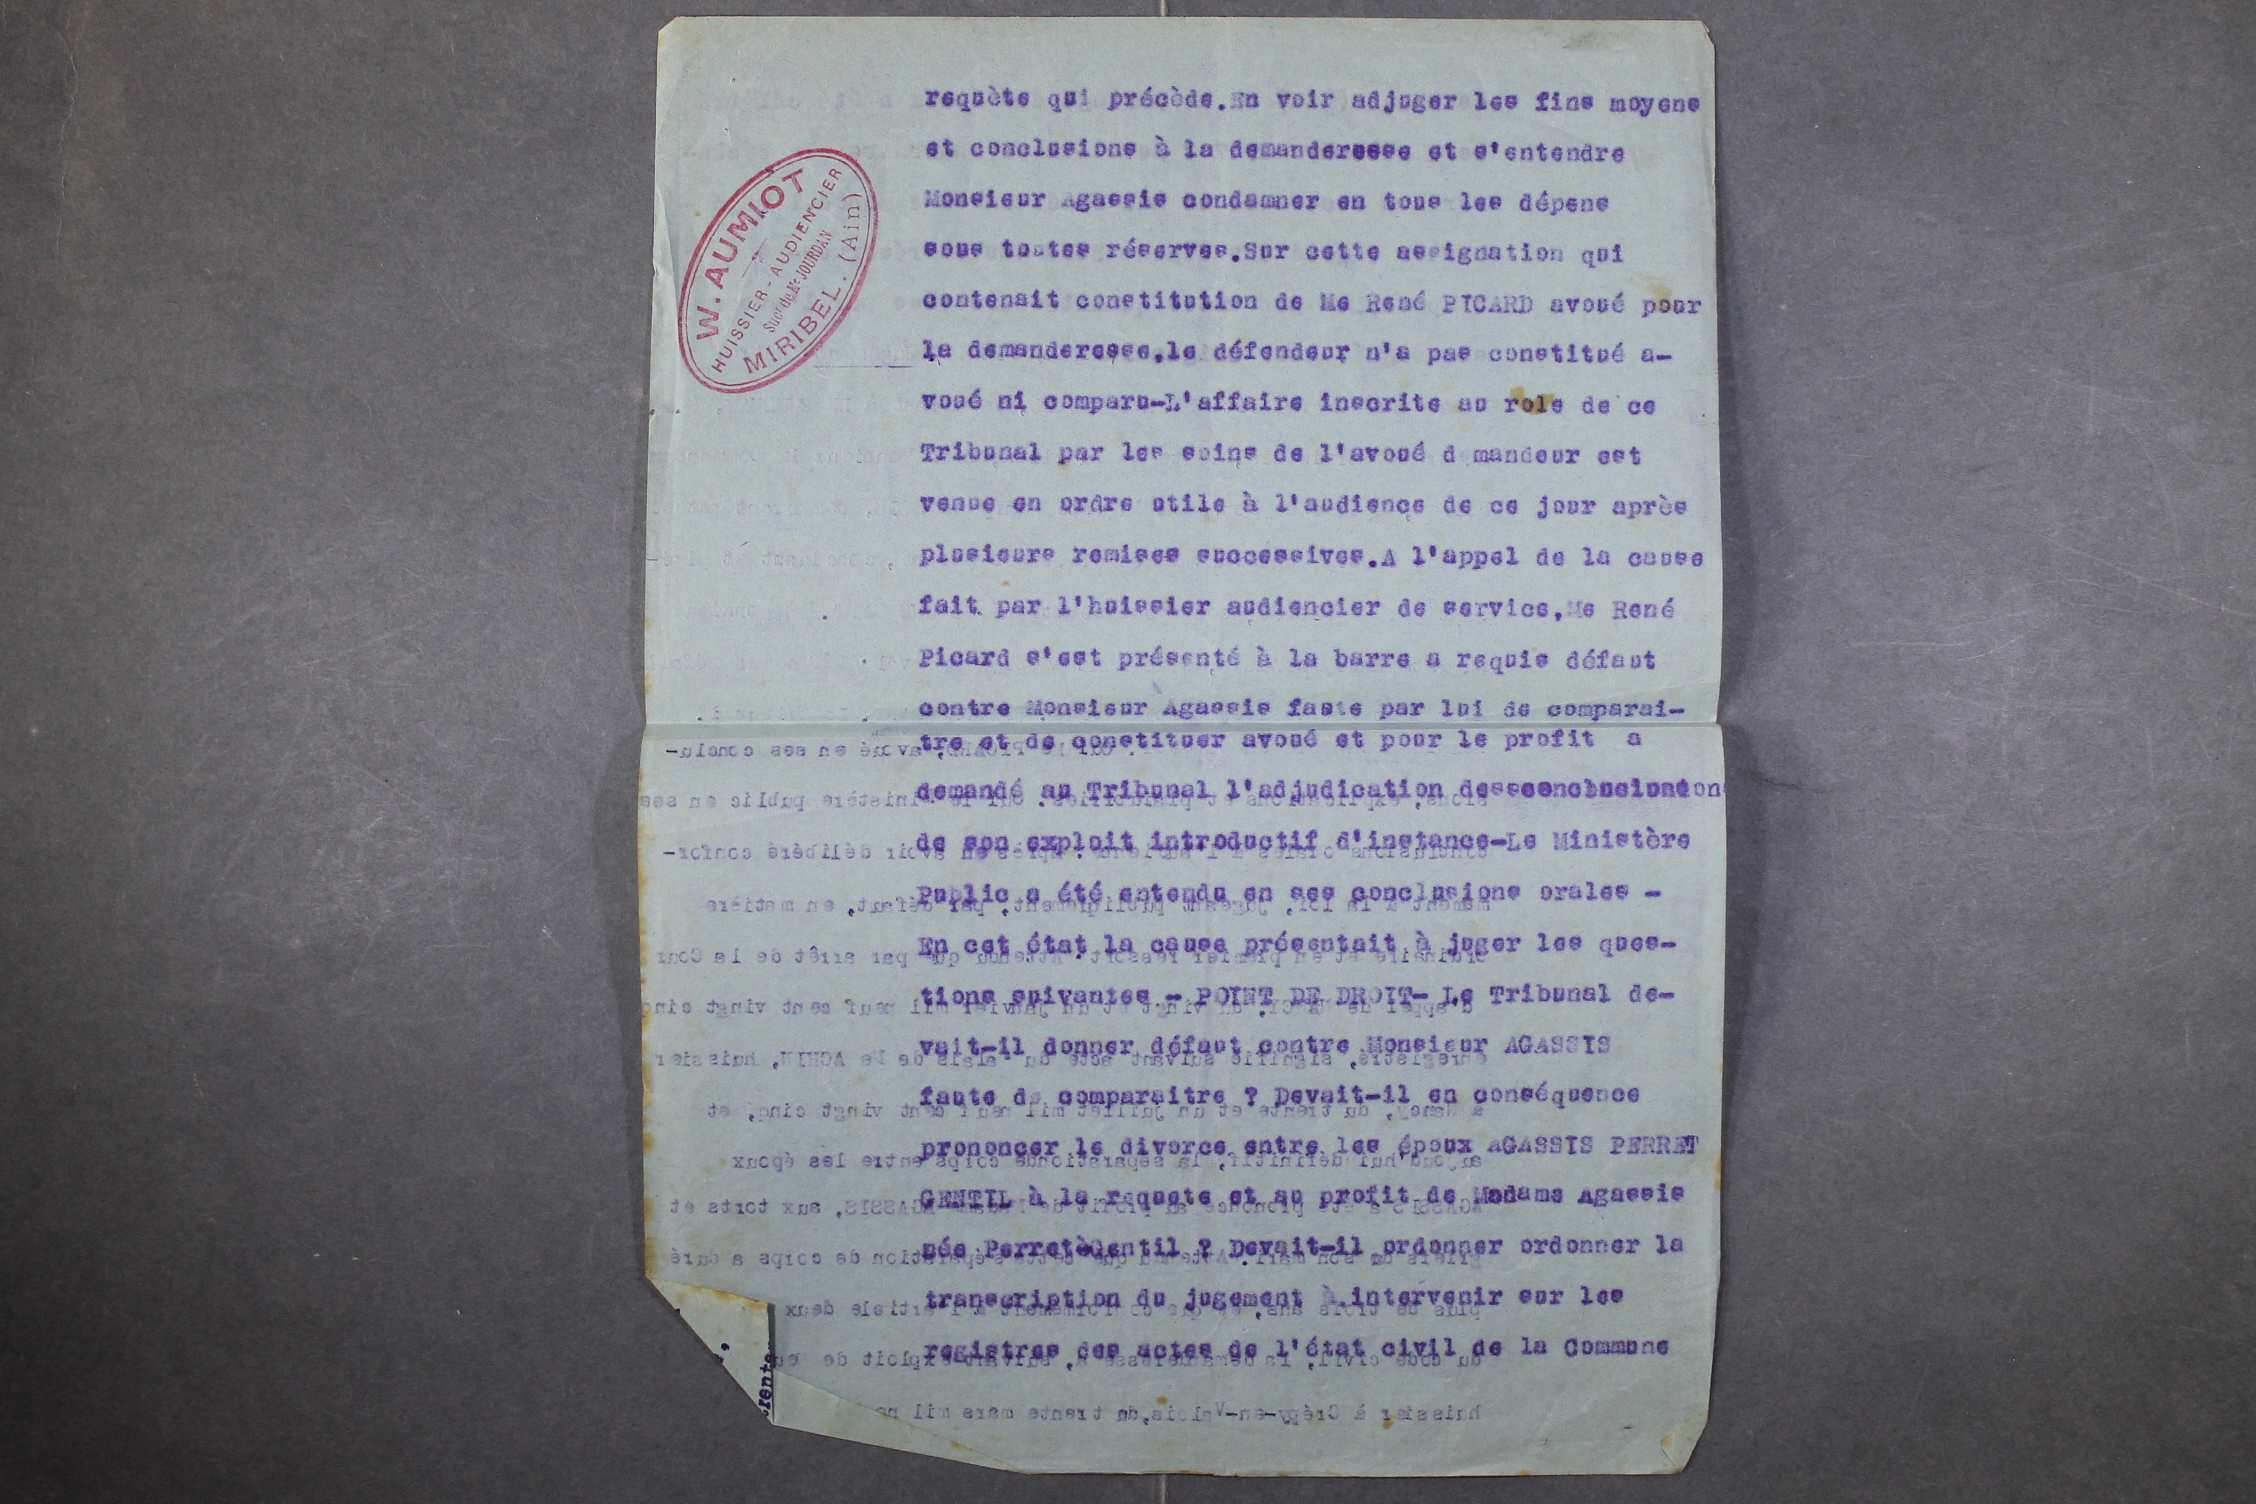 W. AUMIOT
HUISSIER-AUDIENCIER
Sucr de Me JOURDAN
MIRIBEL. (Ain)
requète qui précède.En voir adjuger les fins moyens
et conclusions à la demanderesse et s'entendre
Monsieur Agassis condamner en tous les dépens
sous toutes réserves.Sur cette assignation qui
contenait constitution de Me René PICARD avoué pour
la demanderesse,le défendeur n'a pas constitué a-
voué ni comparu-L'affaire inscrite au role de ce
Tribunal par les soins de l'avoué d mandeur est
venue en ordre utile à l'audience de ce jour après
plusieurs remises successives.A l'appel de la cause
fait par l'huissier audiencier de service,Me René
Picard s'est présenté à la barre a requis défaut
contre Monsieur Agassis faute par lui de comparai-
tre et de constituer avoué et pour le profit a
demandé au Tribunal l'adjudication des conclusions
de son exploit introductif d'instance-Le Ministère
Public a été entendu en ses conclusions orales -
En cet état la cause présentait à juger les ques-
tions suivantes - POINT DE DROIT- Le Tribunal de-
vait-il donner défaut contre Monsieur AGASSIS
faute de comparaitre ? Devait-il en conséquence
prononcer le divorce entre les époux AGASSIS PERRET
GENTIL à la requete et au profit de Madame Agassis
née PerretèGentil ? Devait-il ordonner ordonner la
transcription du jugement à intervenir sur les
registres des actes de l'état civil de la Commune